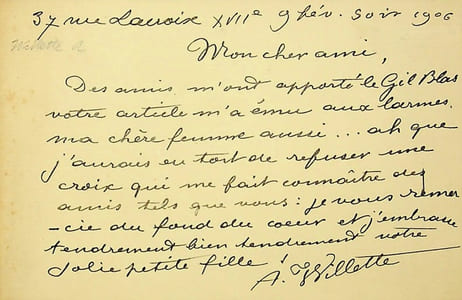 37 rue Lacroix XVIIe 9 fév. Soir 1906
Willette A
Mon cher ami,
Des amis m'ont apporté le Gil Blas
votre article m'a ému aux larmes.
ma chère femme aussi... ah que
j'aurais eu tort de refuser une
croix qui me fait connaître des
amis tels que vous: je vous remer
-cie du fond du coeur et j'embrasse
tendrement bien tendrement votre
jolie petite fille
A. Willette